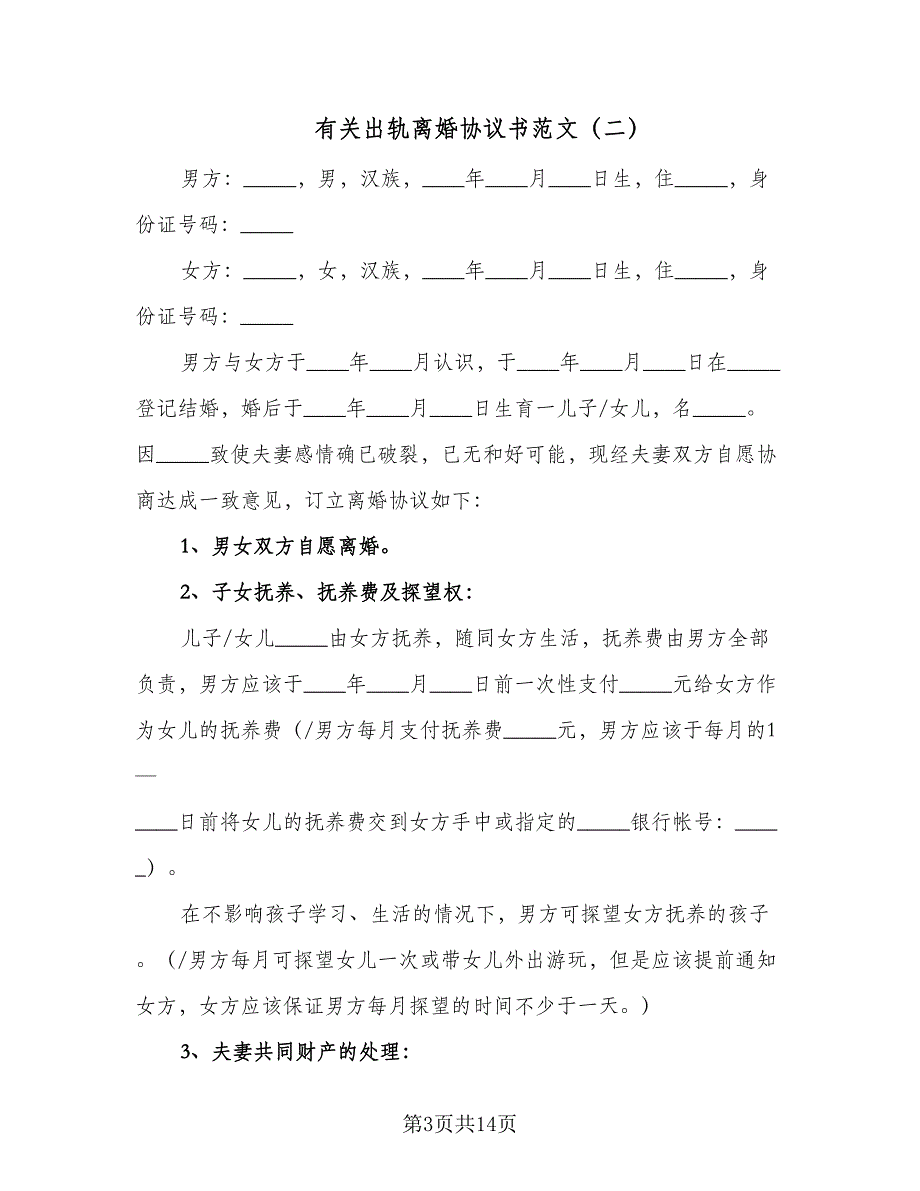 有关出轨离婚协议书范文（二）
男方：_____，男，汉族，____年____月____日生，住_____，身
份证号码：_____
女方：_____，女，汉族，____年____月____日生，住_____，身
份证号码：_____
男方与女方于____年____月认识，于____年____月____日在_____
登记结婚，婚后于____年____月____日生育一儿子/女儿，名_____。
因_____致使夫妻感情确已破裂，已无和好可能，现经夫妻双方自愿协
商达成一致意见，订立离婚协议如下：
1、男女双方自愿离婚。
2、子女抚养、抚养费及探望权：
儿子/女儿_____由女方抚养，随同女方生活，抚养费由男方全部
负责，男方应该于____年____月____日前一次性支付_____元给女方作
为女儿的抚养费（/男方每月支付抚养费_____元，男方应该于每月的1
—
____日前将女儿的抚养费交到女方手中或指定的_____银行帐号：____
_）。
在不影响孩子学习、生活的情况下，男方可探望女方抚养的孩子
。（/男方每月可探望女儿一次或带女儿外出游玩，但是应该提前通知
女方，女方应该保证男方每月探望的时间不少于一天。）
3、夫妻共同财产的处理：
第3页共14页